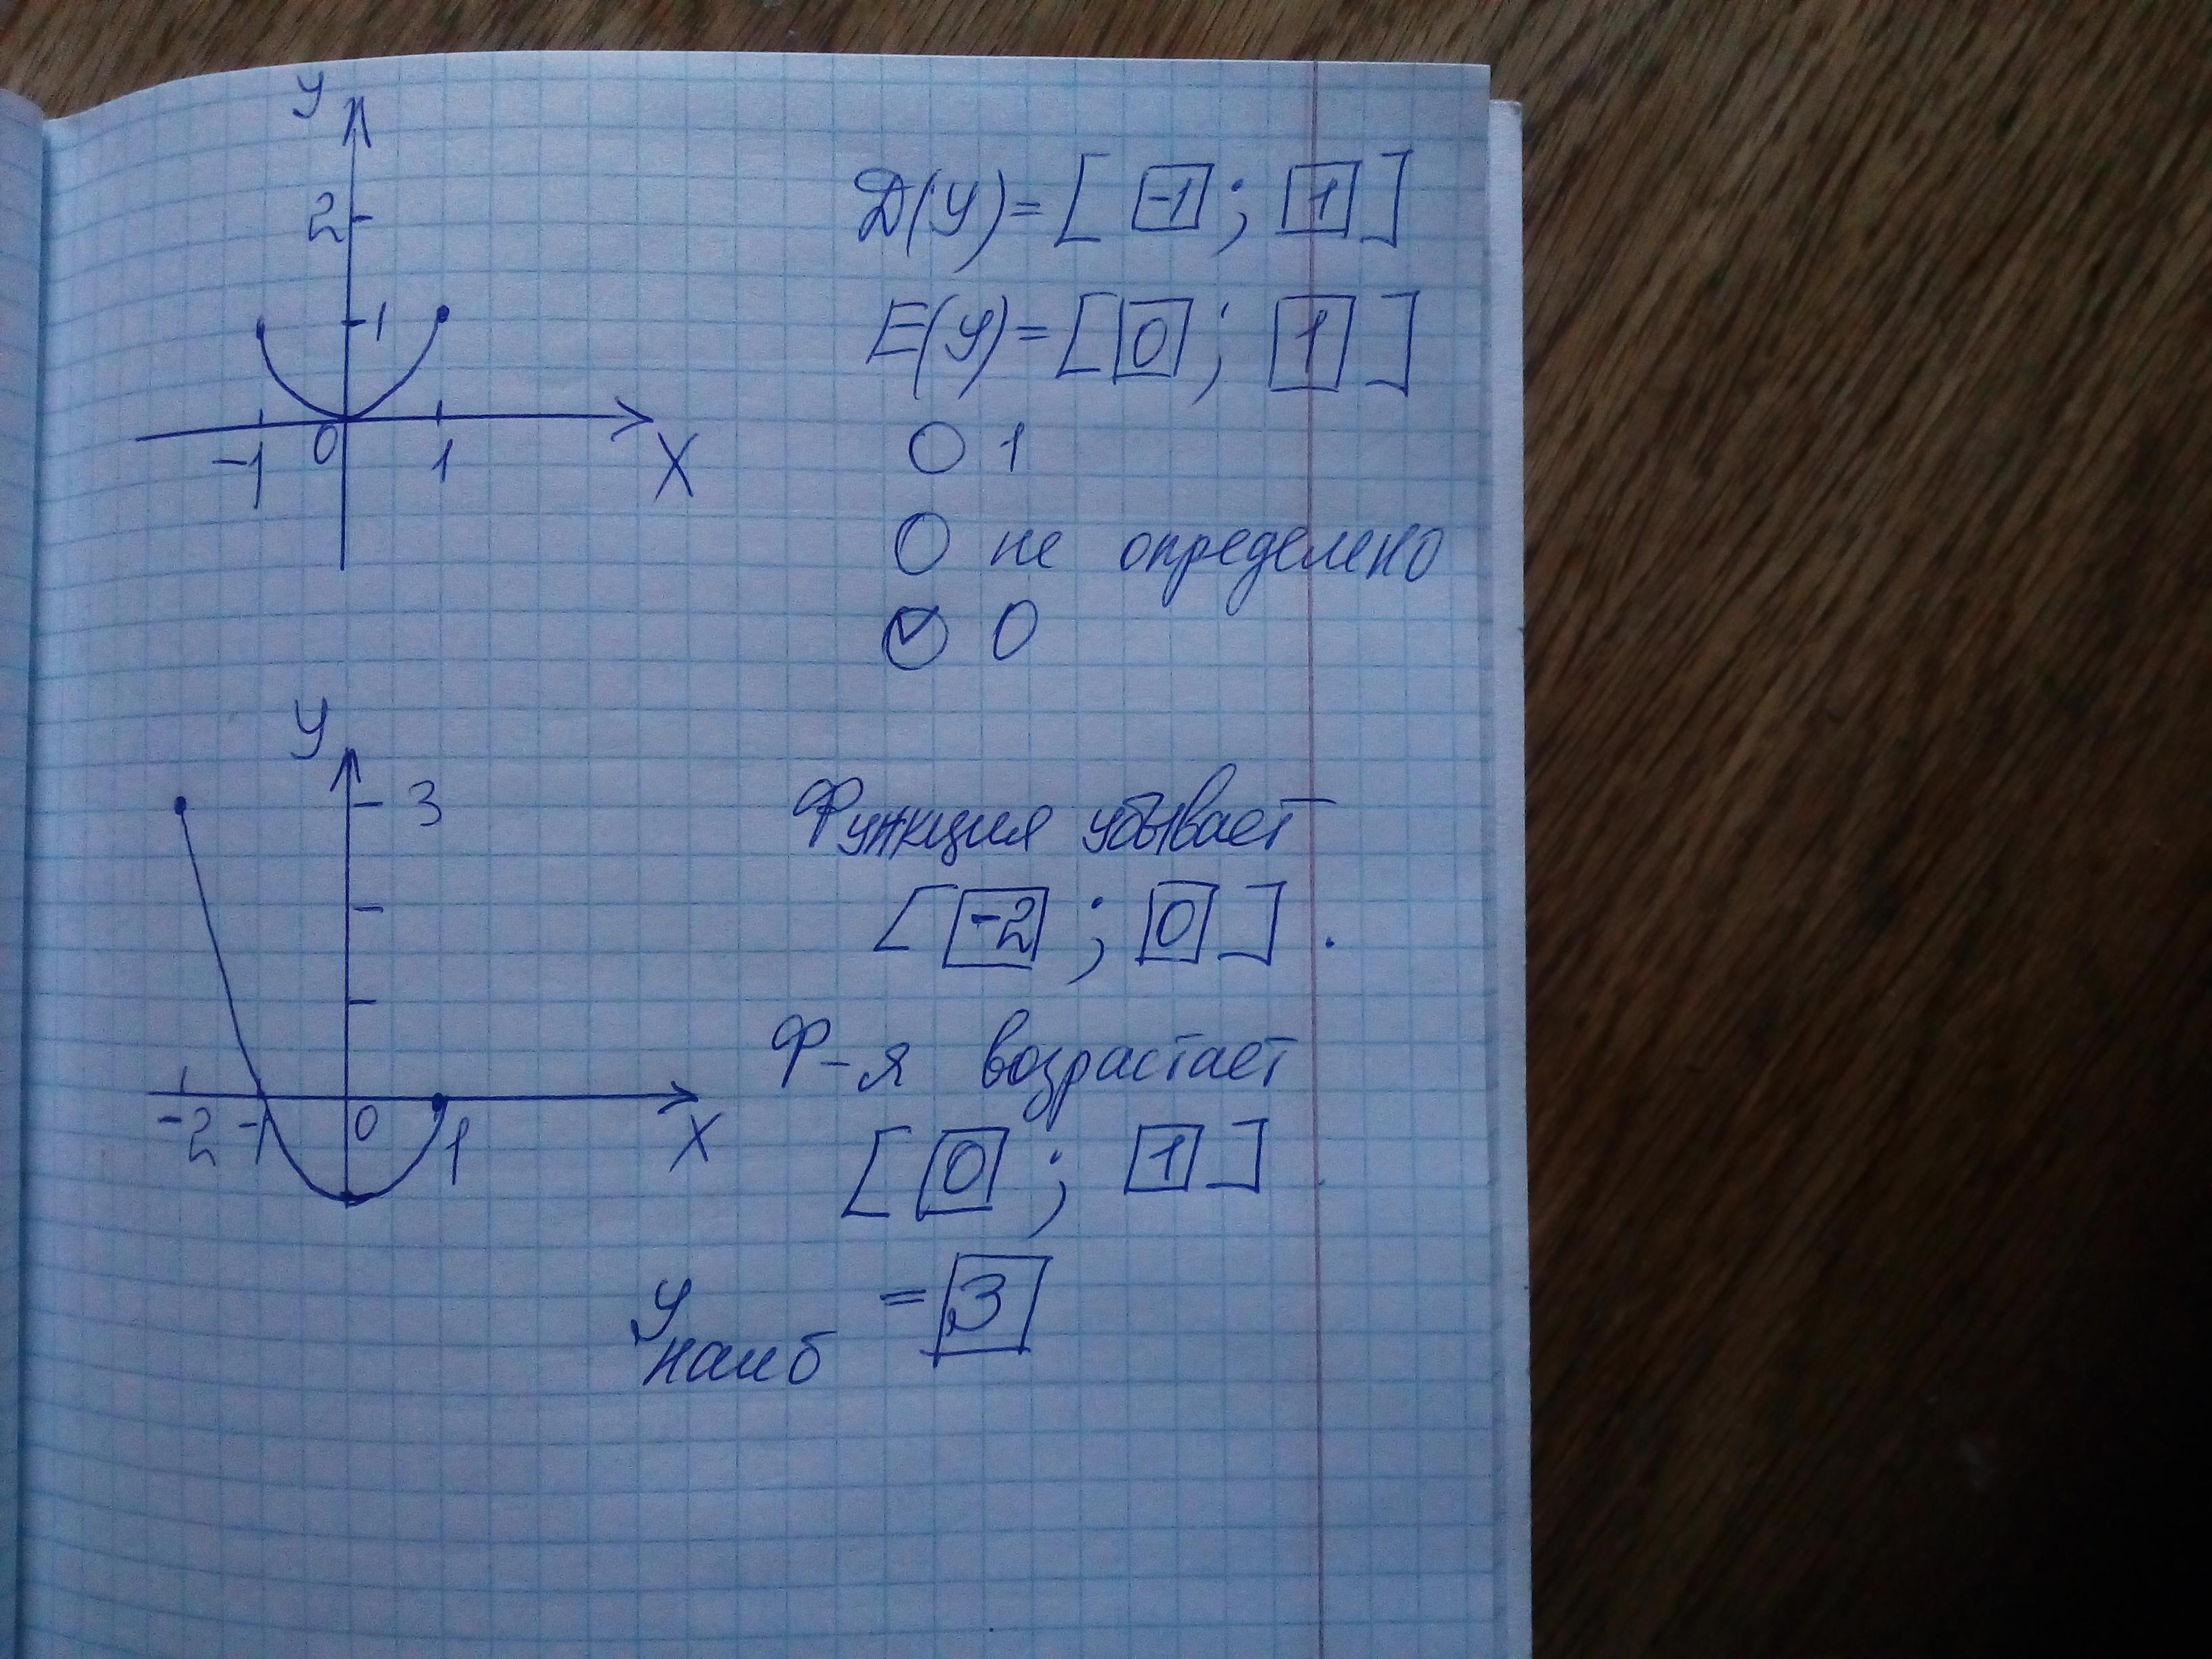 y
2
1
-1 0 1 X
D(y)=[-1; 1]
E(y)=[0; 1]
1
не определено
0
y
3
-2 -1 0 1 X
Функция убывает
[-2; 0].
Ф-я возрастает
[0; 1]
y наиб = 3